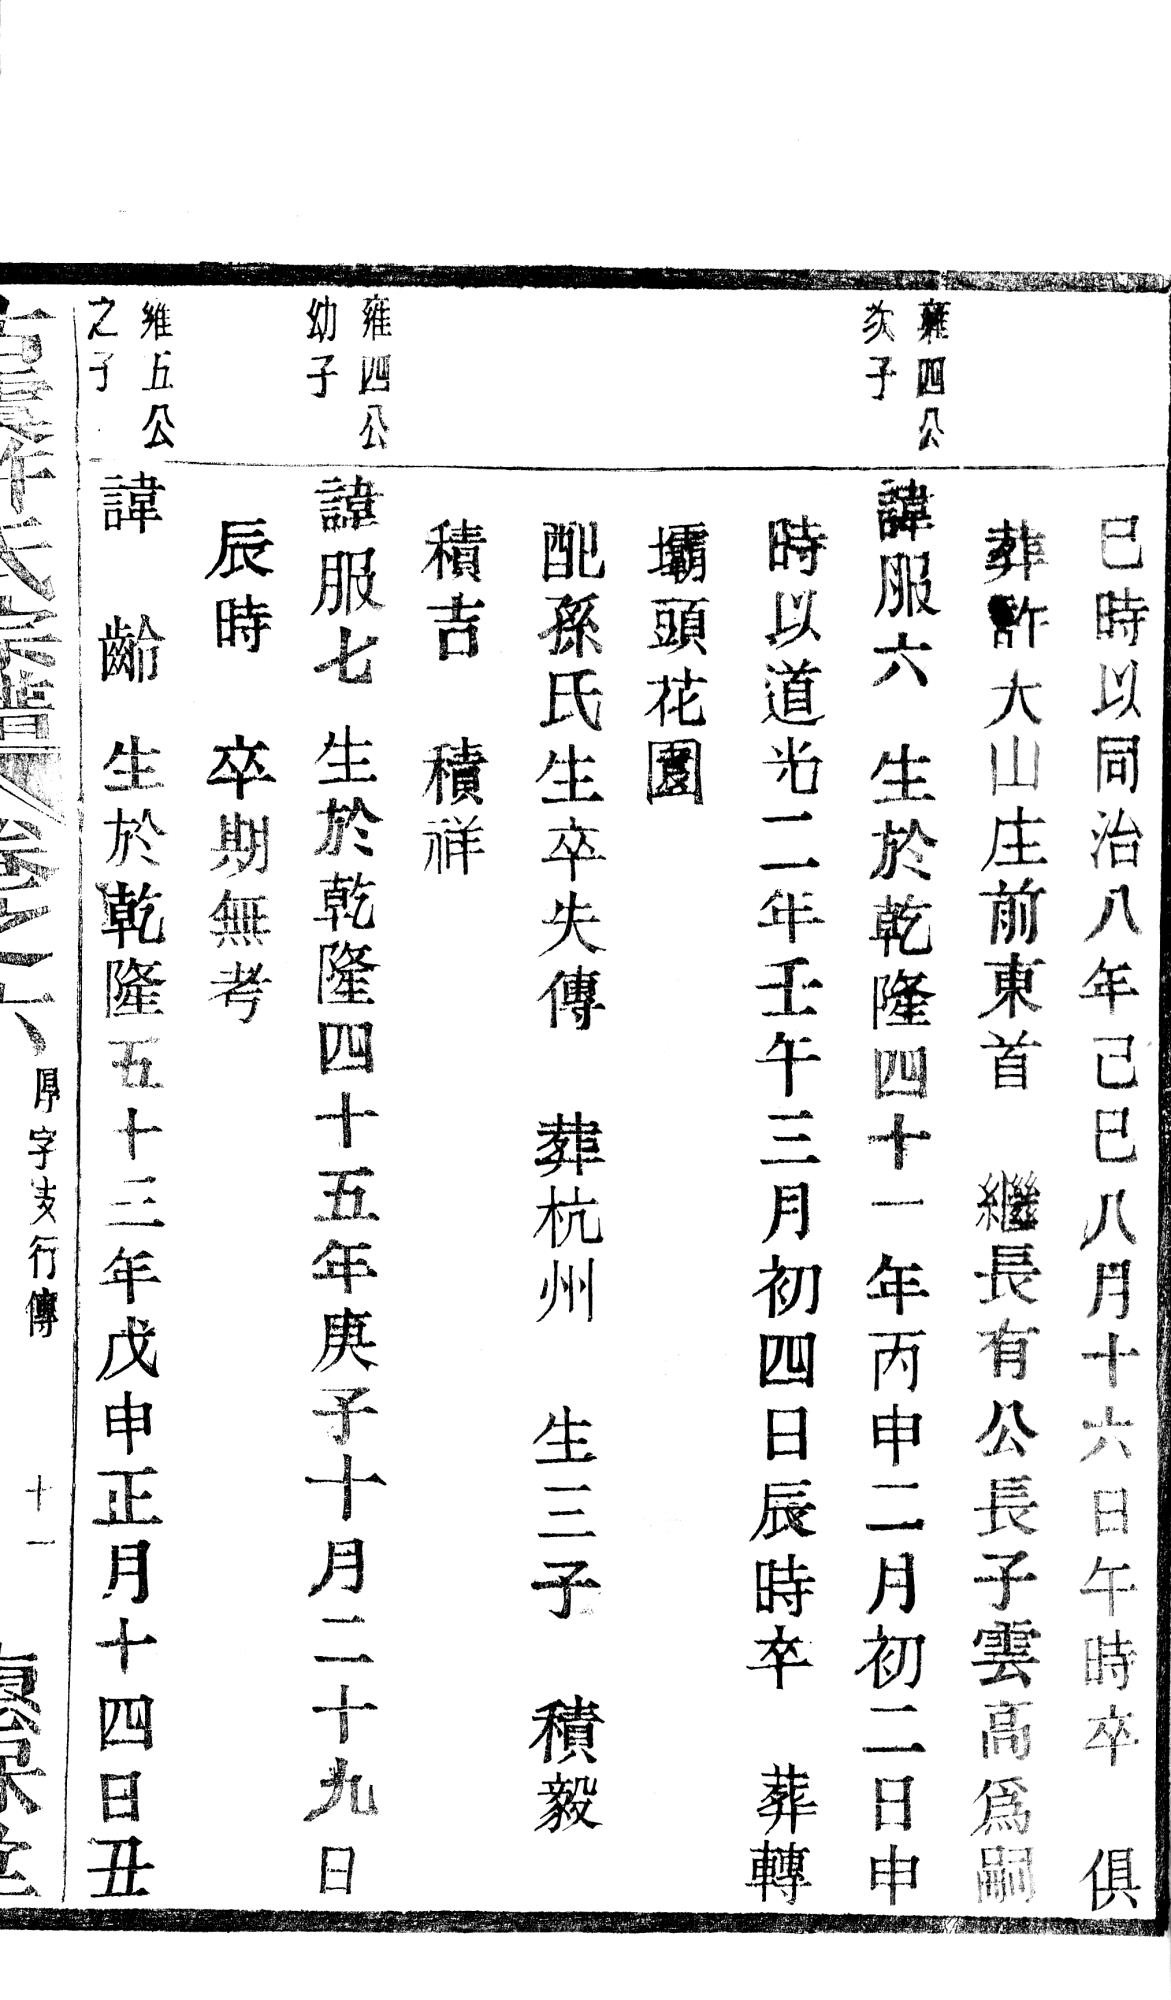 巳時以同治八年己巳八月十六日午時卒　俱
葬許大山庄前東首　繼長有公長子雲高爲嗣
雍四公
次子
諱服六　生於乾隆四十一年丙申二月初二日申
時以道光二年壬午三月初四日辰時卒　葬轉
壩頭花園
配孫氏生卒失傳　葬杭州　生三子　積毅
積吉　積祥
雍四公
幼子
諱服七　生於乾隆四十五年庚子十月二十九日
辰時　卒期無考
雍五公
之子
諱　齡　生於乾隆五十三年戊申正月十四日丑
許氏宗譜卷之六　厚字支行傳　十一